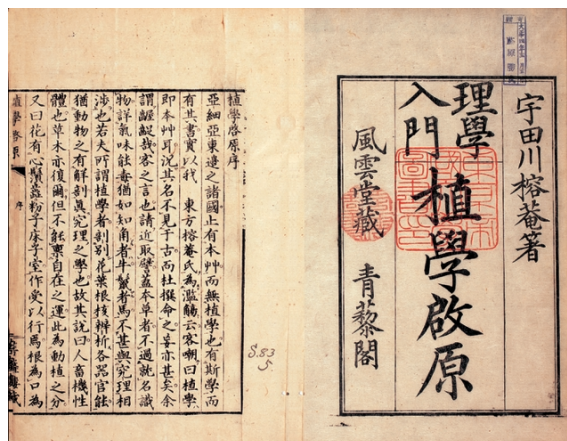 宇田川榕菴著
理學
入門
植學啟原
風雲堂藏 青藜閣
植學啓原序
亞細亞東邊之諸國止有本艸而無植學也有斯學而
有其書實以我 東方榕菴氏為濫觴云客嘲曰植學
即本艸耳況其名不見于古而杜撰命之妄亦甚矣余
謂齷齪哉客之言也請近取譬蓋本草者不過就名識
物詳氣味能毒猶如知角者牛鬣者馬不甚與究理相
涉也若夫所謂植學者剖別花葉根核辨析各器官能
猶動物之有解剖眞究理之學也故其説曰人畜機性
體也草木亦復爾但不能禀自在之運此為動植之分
又曰花有心鬚蕊粉子床子室作受以行焉根為口為
植學啓原 序
S.83
5